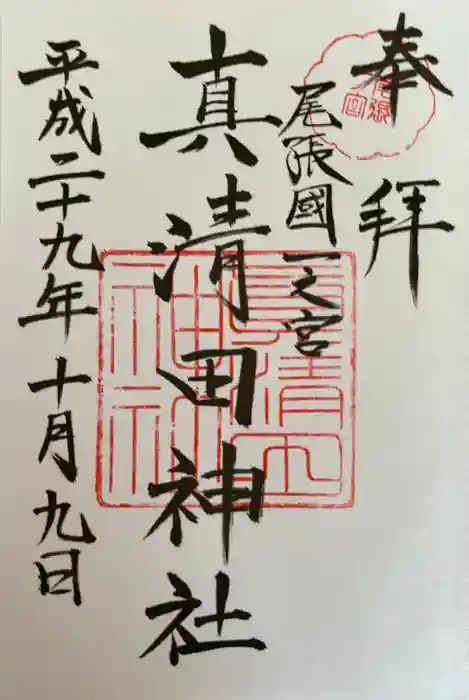 奉拝
尾張國一之宮
真清田神社
平成二十九年十月九日
真清田
神社